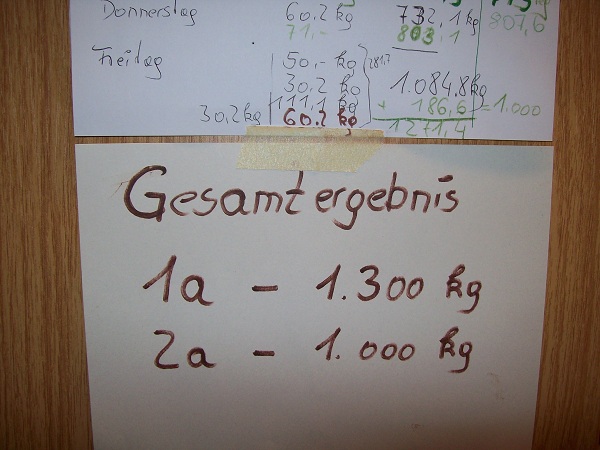 Donnerstag 60,2 kg 732,1 kg 807,6
71,- 803,1
Freitag 50,- kg 281,7
30,2 kg 1.084,8 kg
111,1 kg + 186,6 = 1.000
30,2 kg 60,2 kg 1271,4
Gesamtergebnis
1a - 1.300 kg
2a - 1.000 kg